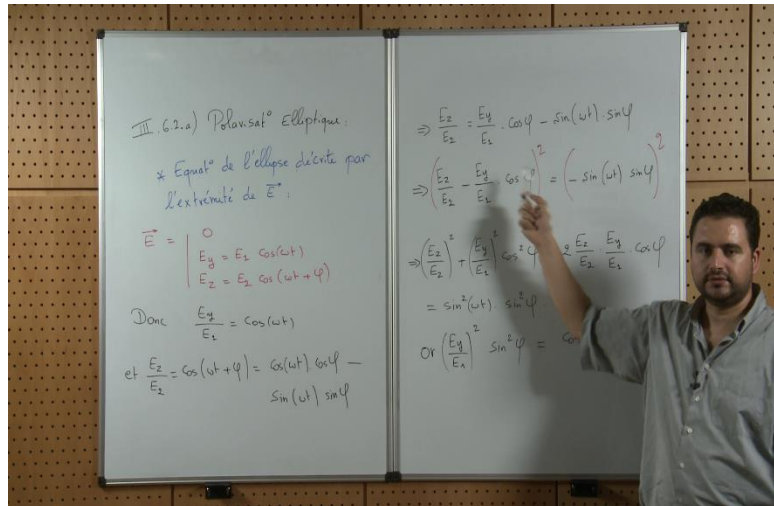 III.6.2.a) Polarisat° Elliptique :
* Equat° de l'ellipse décrite par
l'extrémité de E⃗ :
E⃗ = | 0
E_y = E_1 cos(ωt)
E_z = E_2 cos(ωt + φ)
Donc E_y/E_1 = cos(ωt)
et E_z/E_2 = cos(ωt + φ) = cos(ωt) cosφ −
sin(ωt) sinφ
⇒ E_z/E_2 = E_y/E_1 . cosφ − sin(ωt). sinφ
⇒ (E_z/E_2 − E_y/E_1 cosφ)² = (− sin(ωt) sinφ)²
⇒ (E_z/E_2)² + (E_y/E_1)² cos²φ 2 E_z/E_2 . E_y/E_1 . cosφ
= sin²(ωt). sin²φ
Or (E_y/E_1)² sin²φ =